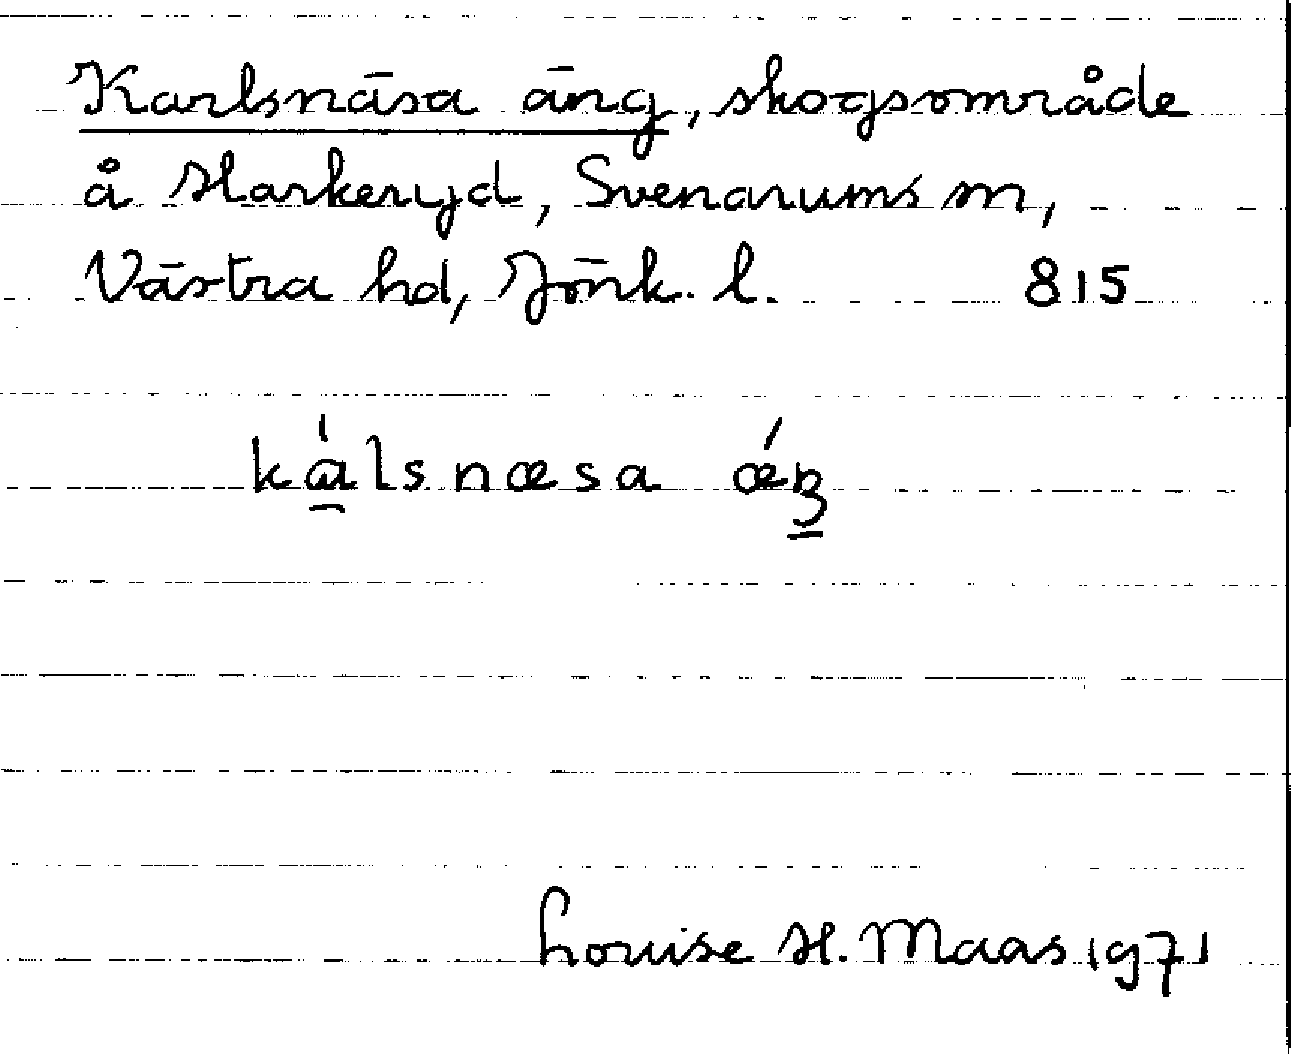 Karlsnäsa äng, skogsområde
å Harkeryd, Svenarums sn,
Västra hd, Jönk. l. 815
kálsnæsa ǽŋ
Louise H. Maas 1971